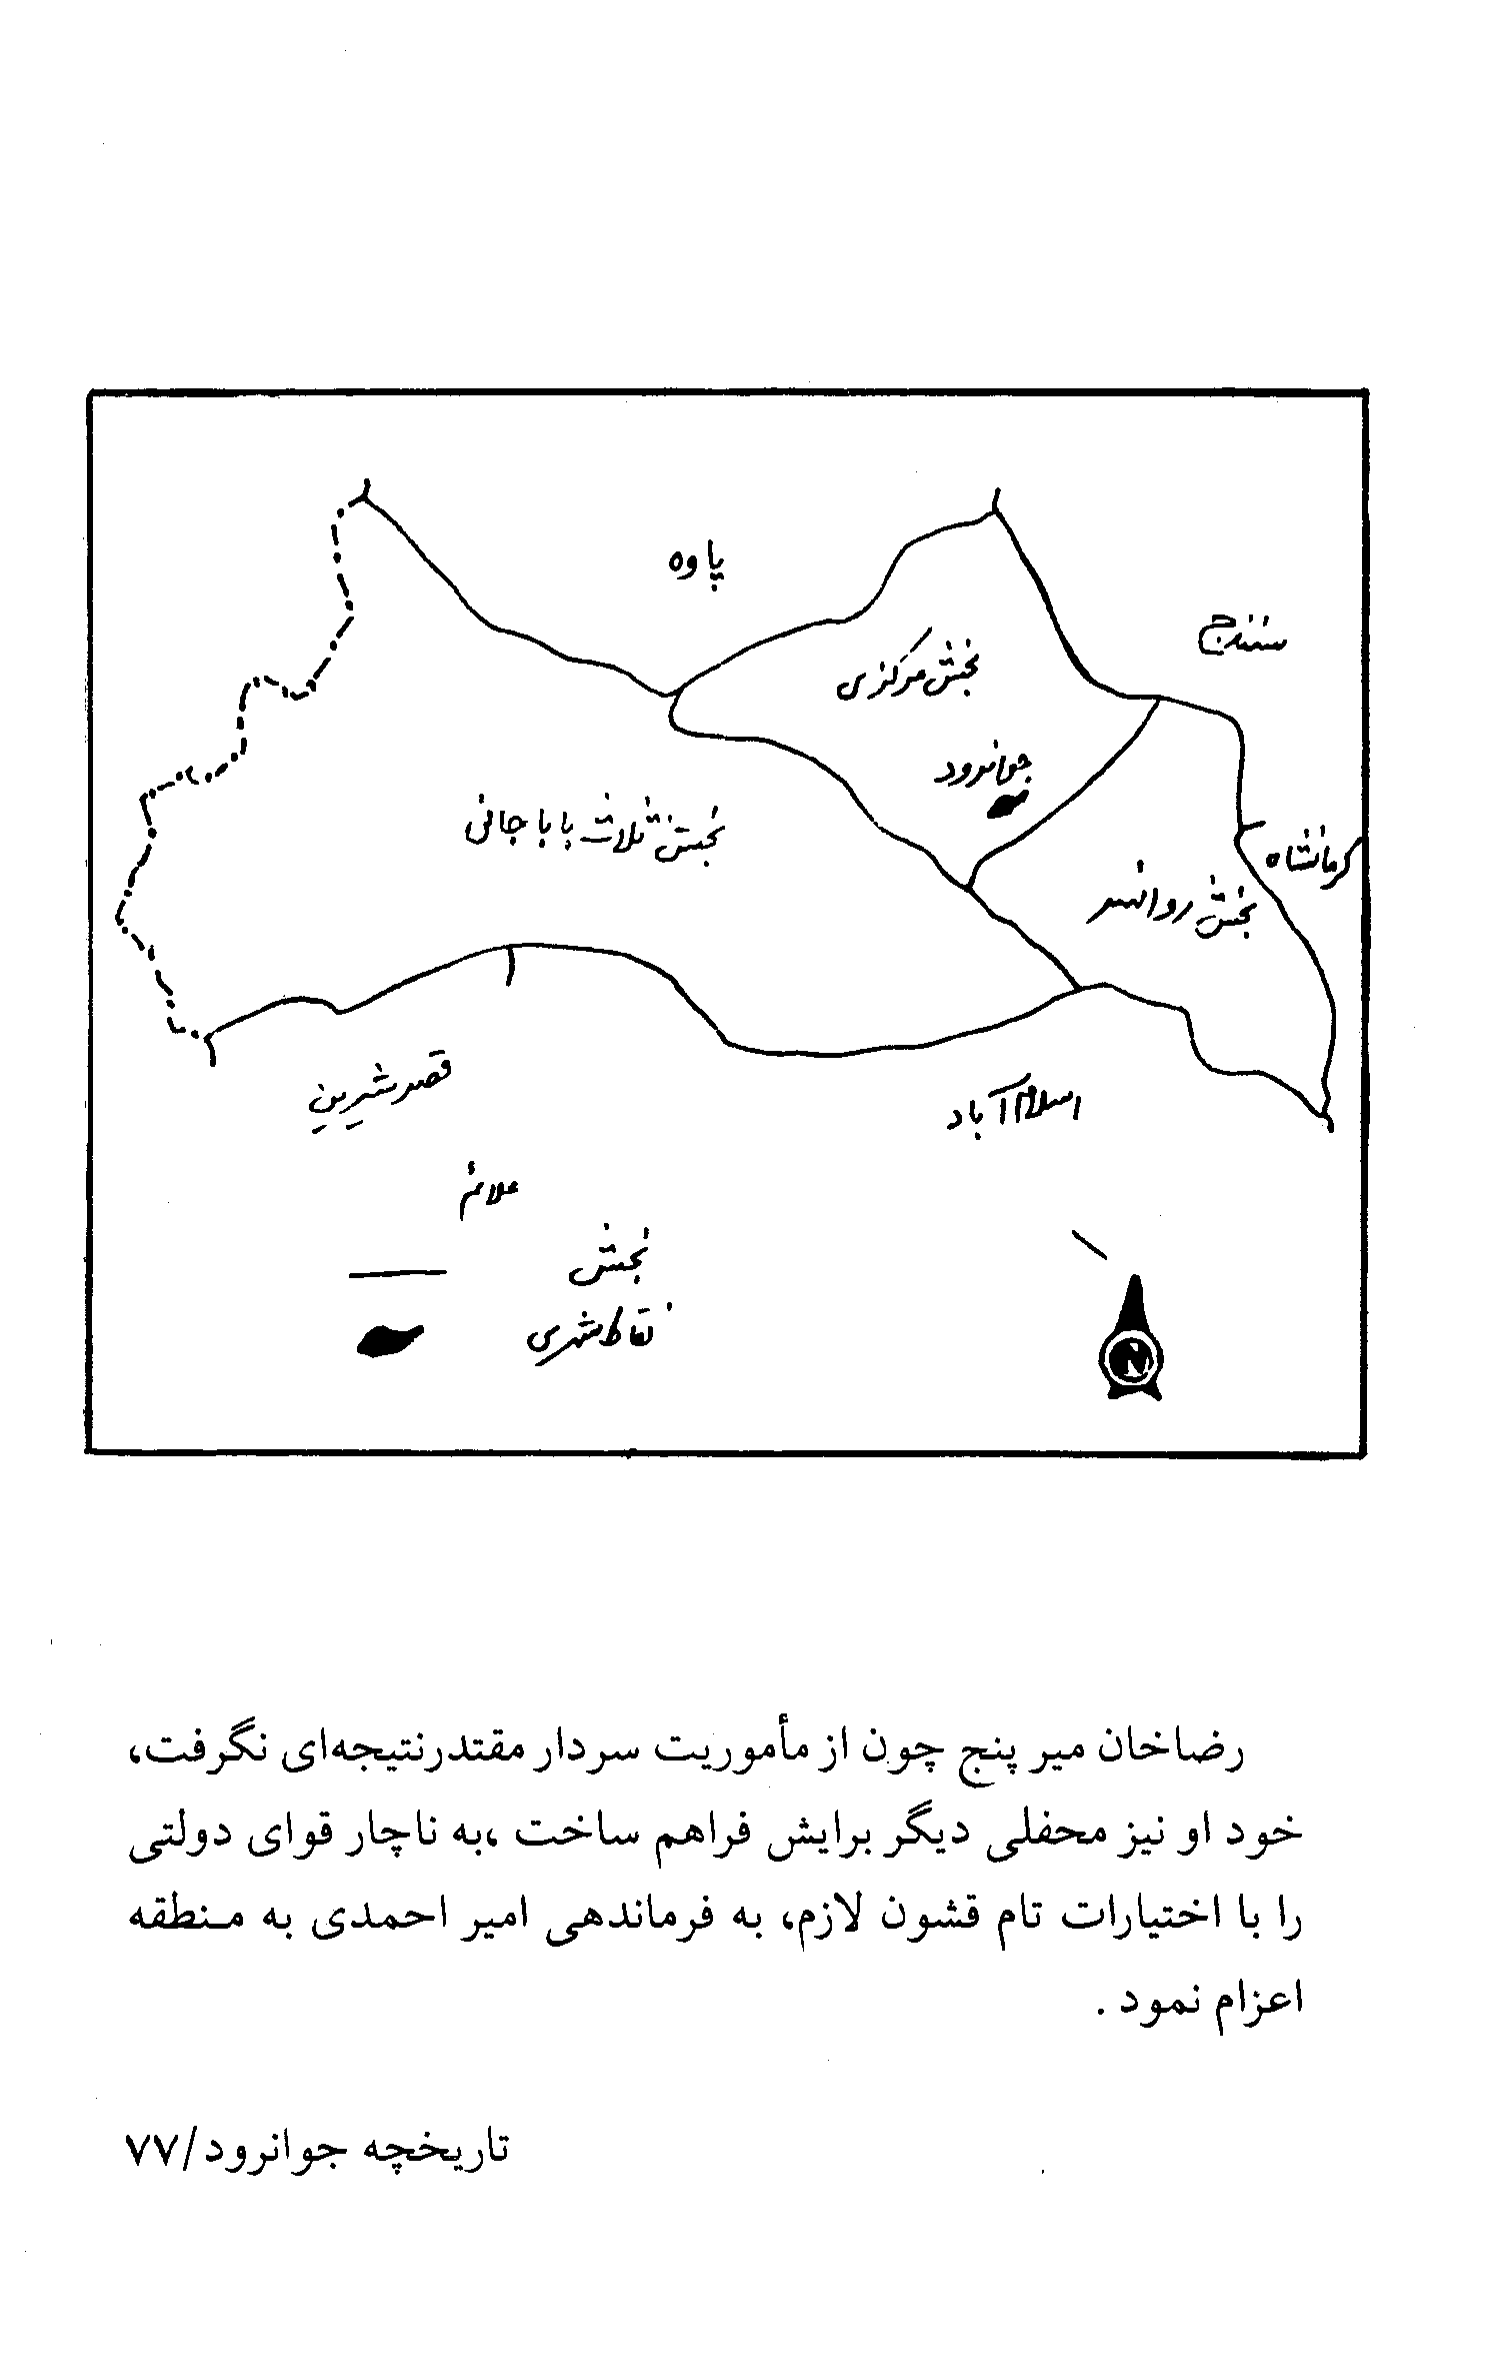 پاوه
سنندج
بخش مرکزی
جوانرود
بخش ثلاث باباجانی
کرمانشاه
بخش روانسر
قصرشیرین
اسلام آباد
علائم
بخش
نقاط شهری
N
رضاخان میر پنج چون از مأموریت سردار مقتدرنتیجه‌ای نگرفت،
خود او نیز محفلی دیگر برایش فراهم ساخت ،به ناچار قوای دولتی
را با اختیارات تام قشون لازم، به فرماندهی امیر احمدی به منطقه
اعزام نمود .
تاریخچه جوانرود/۷۷